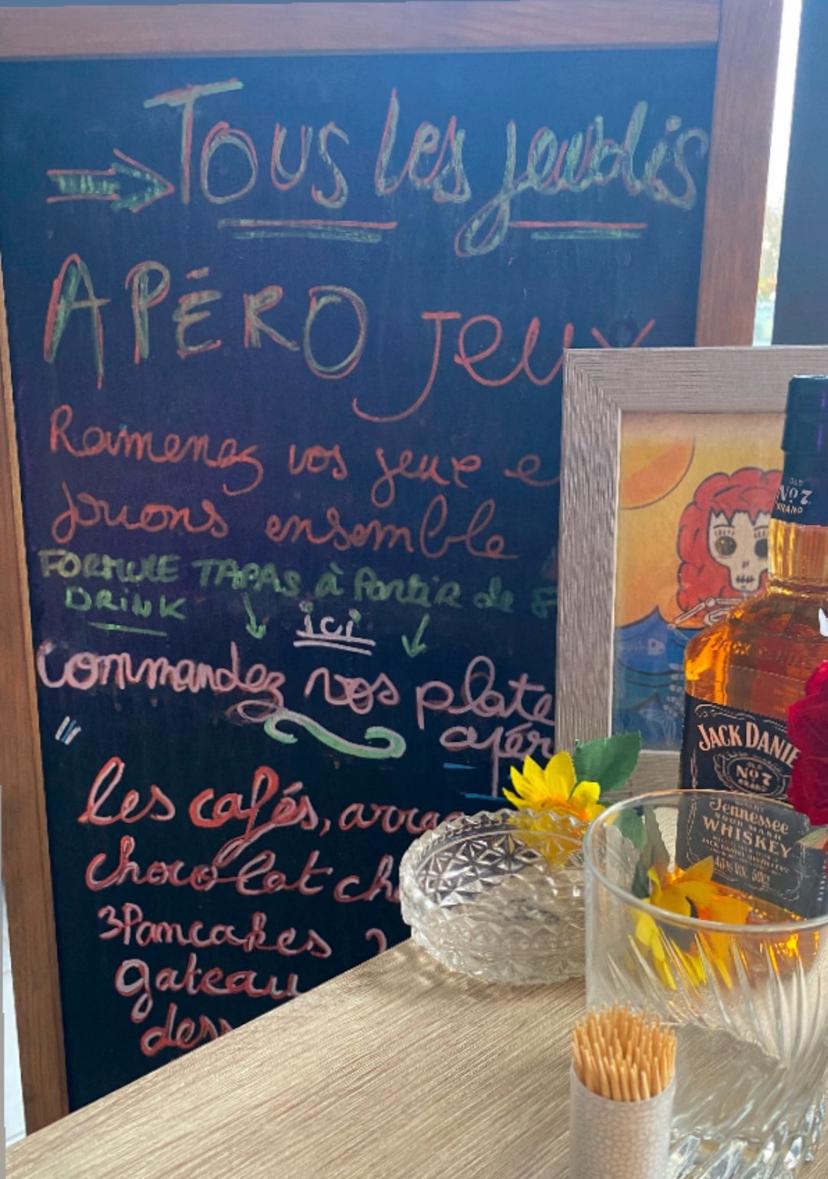 Tous les jeudis
APÉRO jeux
Ramenez vos jeux e
jouons ensemble
FORMULE TAPAS à Partir de
DRINK
ici
commandez vos plate
apér
les cafés, arra
chocolat ch
3 Pancakes
gateau
dess
OLD
No 7
BRAND
JACK DANIE
OLD
No 7
Tennessee
SOUR MASH
WHISKEY